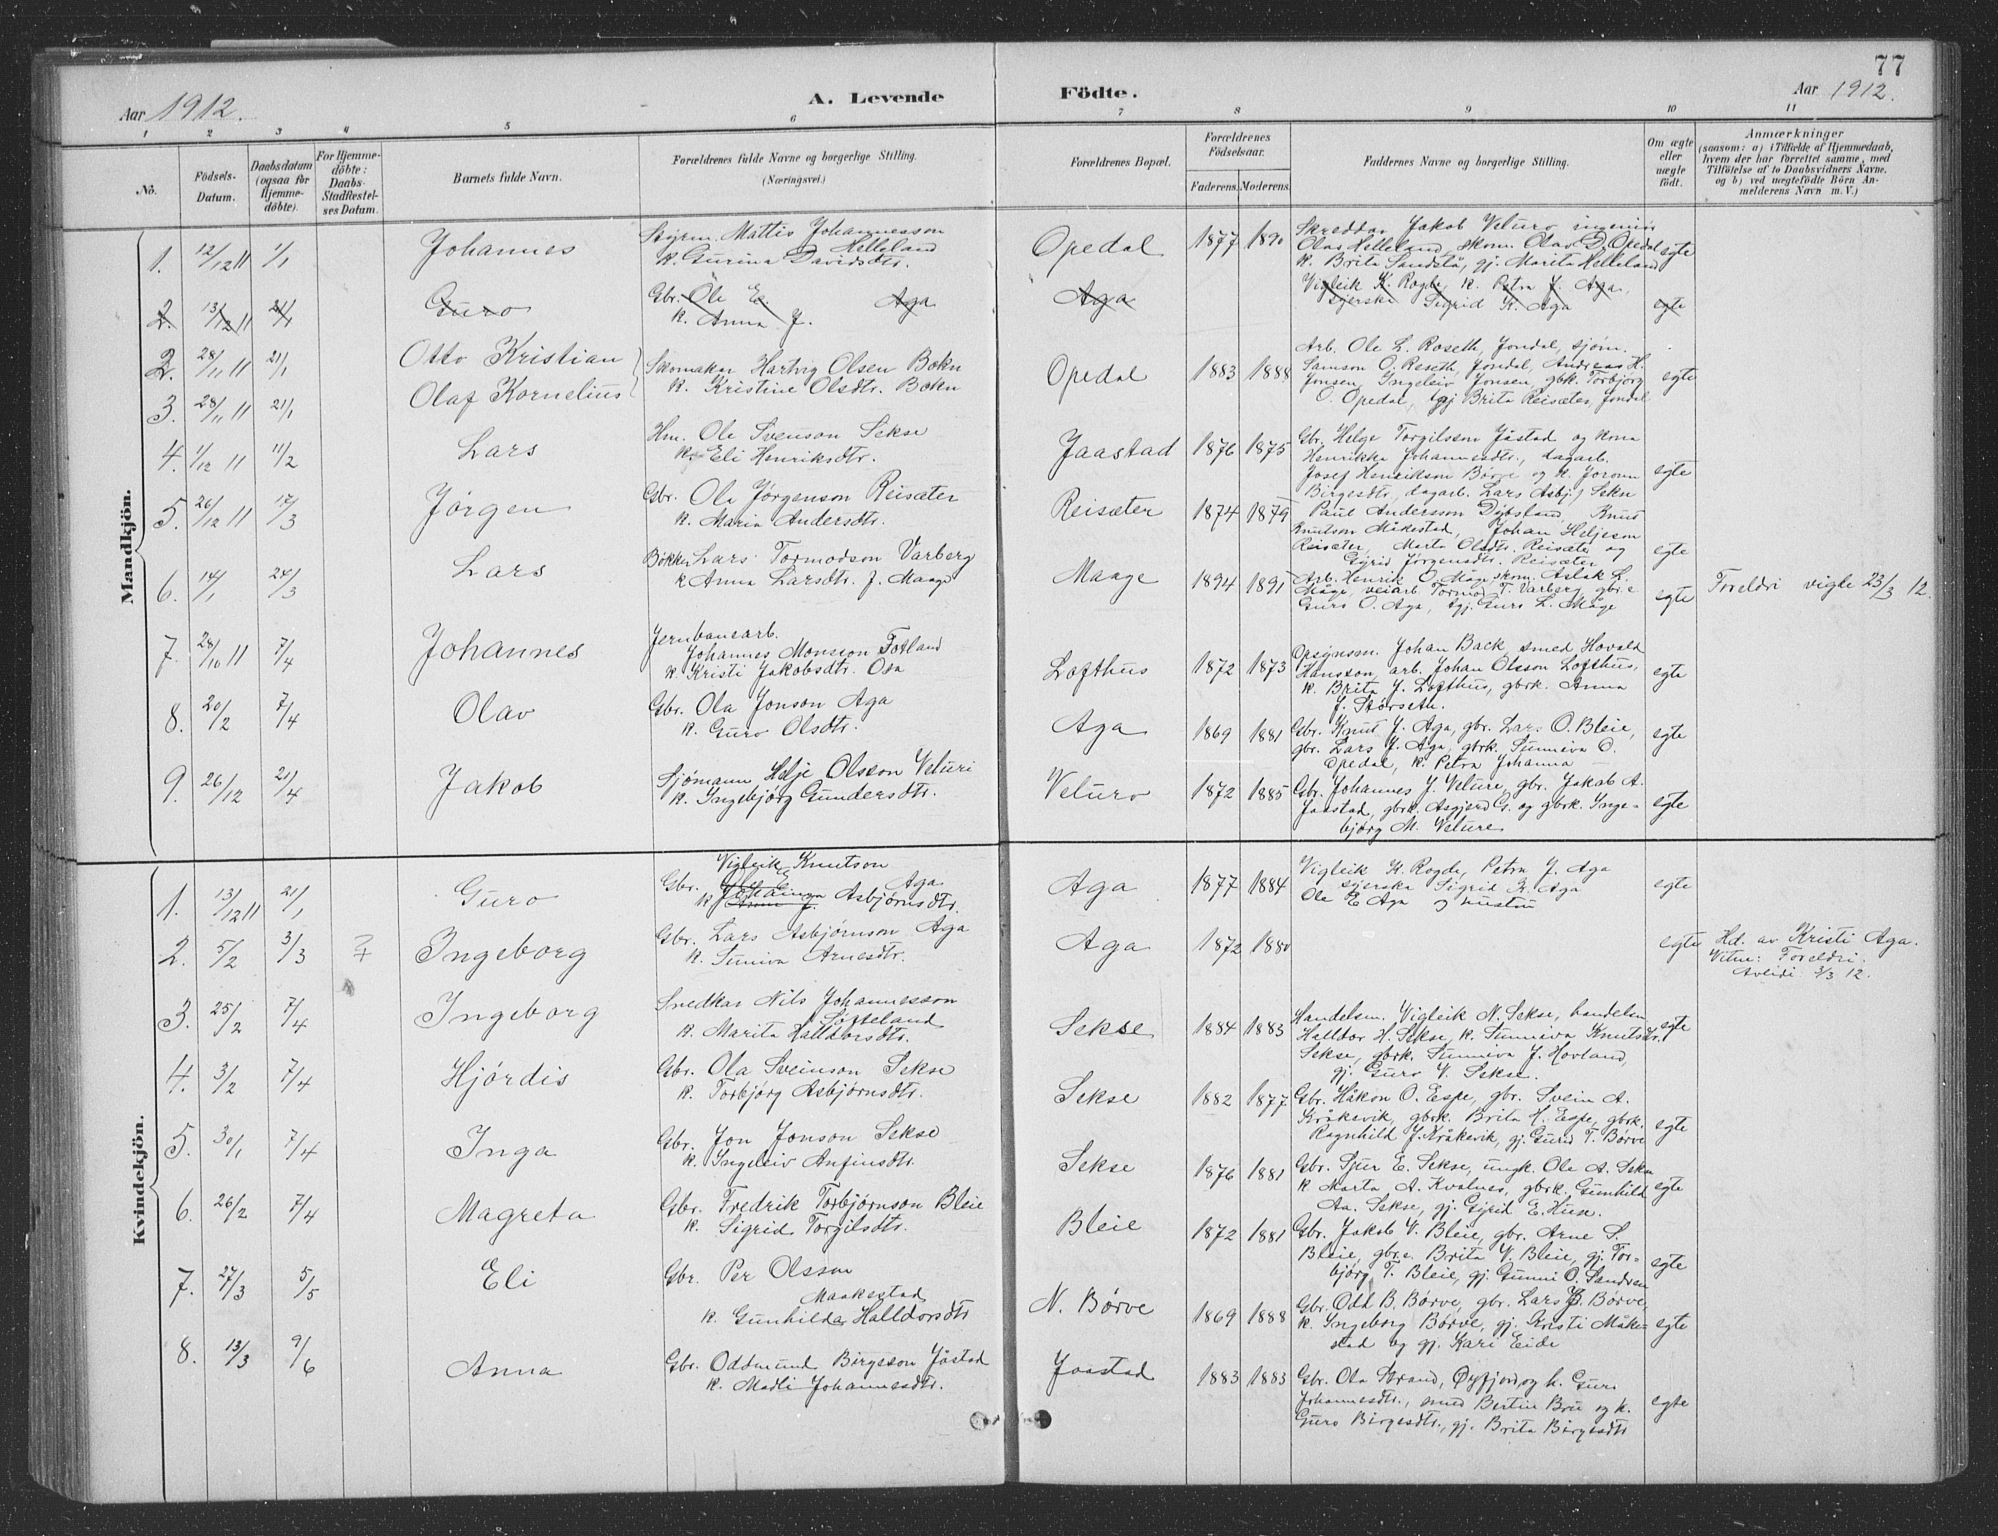 77
Aar 1912.
A. Levende
Födte.
Aar 1912.
1 2 3 4 5 6 7 8 9 10 11
No.
Födsels-Datum.
Daabsdatum (ogsaa for Hjemme-döbte).
For Hjemme-döbte: Daabs-Stadfæstel-ses Datum.
Barnets fulde Navn.
Forældrenes fulde Navne og borgerlige Stilling.
(Næringsvei.)
Forældrenes Bopæl.
Forældrenes Födselsaar.
Faderens. Moderens.
Faddernes Navne og borgerlige Stilling.
Om ægte eller uægte födt.
Anmærkninger
(saasom: a) i Tilfælde af Hjemmedaab,
hvem der har forrettet samme, med
Tilföielse af to Daabsvidners Navne.
og b) ved uægtefödte Börn An-
melderens Navn m. V.)
Mandkjön.
1. 12/12 11 1/1 Johannes
Styrm. Mattis Johannesson
Helleland
k. Gurina Davidsdtr.
Opedal 1877 1890
Skreddar Jakob Veturo ingeniör
Olav Helleland, skom. Olav D. Opedal
k. Brita Sandstö, gj. Marita Helleland
egte
2. 13/12 11 21/1 Guro
Gbr. Ole E. Aga
k. Anna J.
Aga
Vigleik K. Rogde, k. Petra J. Aga,
syerske Sigrid K. Aga
egte
2. 28/11 11 21/1 Otto Kristian
3. 28/11 11 21/1 Olaf Kornelius
Skomakar Hartvig Olsen Bokn
k. Kristine Olsdtr. Bokn
Opedal 1883 1888
Arb. Ole L. Roseth, Jondal, sjöm.
Samson O. Reseth, Jondal, Andreas H.
Jonsen, Ingeleiv Jonsen, gbk. Torbjörg
O. Opedal, gj Brita Reisæter, Jondal
egte
4. 1/12 11 11/2 Lars
Hm. Ole Svenson Sekse
k. Eli Henriksdtr.
Jaastad 1876 1875
Gbr. Helge Torgilsson Jåstad og kona
Henrikke Johannesdtr., dagarb.
Josef Henrikson Börve og k Joronn
Birgesdtr, dagarb. Lars Asbj. Sekse
egte
5. 26/12 11 17/3 Jørgen
Gbr. Ola Jørgenson Reisæter
k. Maria Andersdtr.
Reisæter 1874 1879
Paul Andersson Djösland, Knut
Knutson Måkestad, Johan Heljeson
Reisæter, Marta Olsdtr. Reisæter og
Gyrid Jørgensdtr. Reisæter
egte
6. 14/1 24/3 Lars
Bökker Lars Tormodson Varberg
k Anna Larsdtr. f. Maage
Maage 1894 1891
Arb. Henrik O. Måge, skom. Aslak L.
Måge, veiarb. Tormod T. Varberg gbr.e
Guro O. Aga, gj. Guro L. Måge
egte
Foreldri vigle 23/3 12.
7. 28/10 11 7/4 Johannes
Jernbanearb.
Johannes Monsson Fotland
k Kristi Jakobsdtr. Osa
Lofthus 1872 1873
Opsynsm. Johan Back, smed Hovald
Hansson, arb. Johan Olsson Lofthus,
k. Brita J. Lofthus, gbrk. Anna
J. Störseth.
egte
8. 20/2 7/4 Olav
Gbr. Ola Jonson Aga
k. Guro Olsdtr.
Aga 1869 1881
Gbr. Knut J. Aga, gbr. Lars O. Bleie,
gbr. Lars J. Aga, gbrk. Sunniva O.
Opedal, k. Petra Johanna –
egte
9. 26/12 21/4 Jakob
Sjömann Helje Olsson Veturi
k. Ingebjörg Gundersdtr.
Veturo 1872 1885
Gbr. Johannes J. Veture, gbr. Jakob A.
Jaastad, gbrk. Asgjerd G. og gbrk. Inge-
björg M. Veture
egte
Kvindekjön.
1. 13/12 11 21/1 Guro
Vigleik Knutson
Gbr. Ole E. Aga
k. Johanna Anna J. Asbjørnsdtr.
Aga 1877 1884
Vigleik K. Rogde, Petra J. Aga
syerske Sigrid K. Aga
Ole E Aga og hustru
egte
2. 5/2 3/3 Ingeborg
Gbr. Lars Asbjørnson Aga
k. Sunniva Arnesdtr.
Aga 1872 1880
egte
Hd. av Kristi Aga.
Vitne: Foreldri.
Avlidi 5/3 12.
3. 25/2 7/4 Ingeborg
Snedkar Nils Johannesson
Sætteland
k. Marita Halldorsdtr.
Sekse 1884 1883
Handelsm. Vigleik N. Sekse, handelsm
Halldor H. Sekse, k. Sunniva Knutsdtr.
Sekse, gbrk. Sunniva J. Hovland,
gj. Guro V. Sekse.
egte
4. 3/2 7/4 Hjördis
Gbr. Ola Sveinson Sekse
k. Torbjörg Asbjørnsdtr.
Sekse 1882 1877
Gbr. Håkon O. Espe, gbr. Svein A.
Kråkevik, gbrk. Brita H. Espe, gbrk.
Ragnhild J. Kråkevik, gj. Gurid T. Børve
egte
5. 30/1 7/4 Inga
Gbr. Jon Jonson Sekse
k. Ingeleiv Anfinsdtr.
Sekse 1876 1881
Gbr. Sjur E. Sekse, ungk. Ole A. Sekse
k Marta A. Kvalnes, gbrk. Gunhild
Aa. Sekse, gj. Gyrid E. Huse.
egte
6. 26/2 7/4 Magreta
Gbr. Fredrik Torbjørnson Bleie
k. Sigrid Torgilsdtr.
Bleie 1872 1881
Gbr. Jakob V. Bleie, gbr. Arne S.
Bleie, gbr.e Brita V. Bleie, gj. Tor-
björg T. Bleie, gj. Gunni O. Sandven
egte
7. 27/3 5/5 Eli
Gbr. Per Olsson
Maakestad
k. Gunhilda Halldorsdtr
N. Børve 1869 1888
Gbr. Odd B. Børve, gbr. Lars B. Børve,
k. Ingeborg Børve, gj. Kristi Måke-
stad og gj. Kari Eide
egte
8. 13/3 9/6 Anna
Gbr. Oddmund Birgesson Jåstad
k. Madli Johannesdtr.
Jaastad 1883 1883
Gbr. Ola Strand, Öyfjord, og k. Guro
Johannesdtr., smed Bertin Bru og k.
Guro Birgesdtr., gj. Brita Birgesdtr
egte